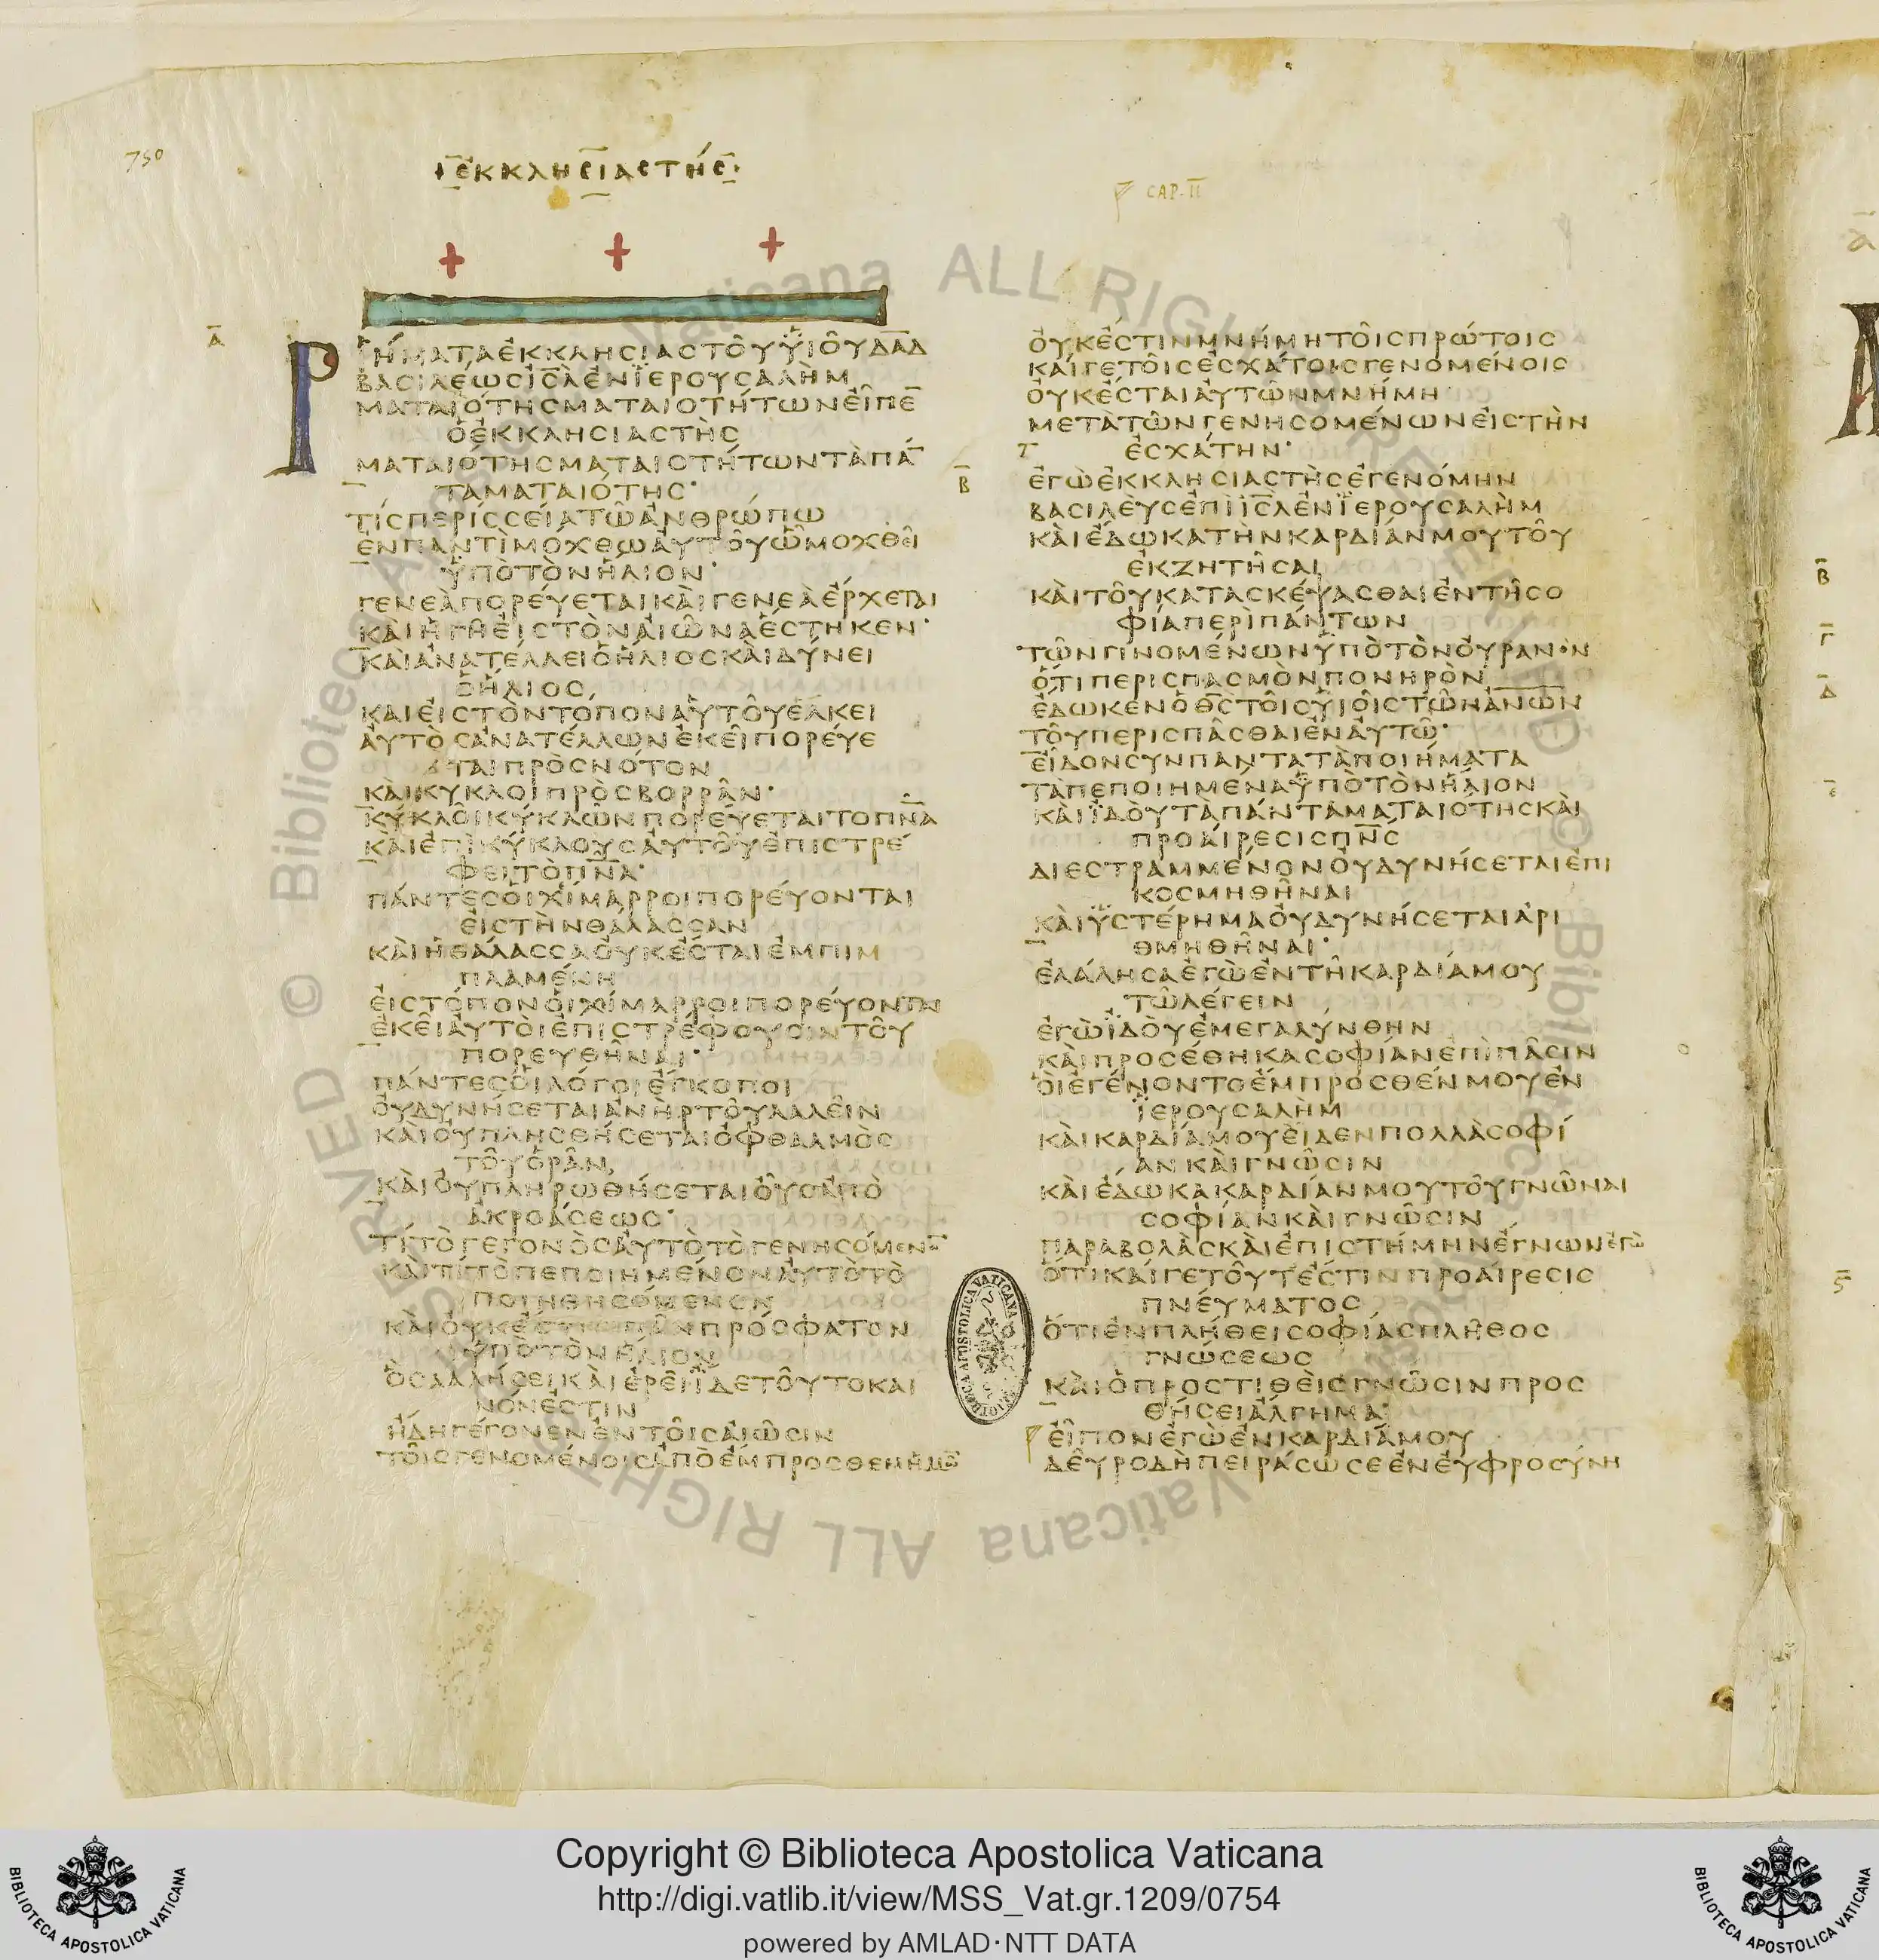 750
ΕΚΚΛΗCΙΑCΤΗC
CAP-II
Α
ΡΗΜΑΤΑΕΚΚΛΗCΙΑCΤΟΥΥΙΟΥΔΑΔ
ΒΑCΙΛΕΩCΙCΛΕΝΙΕΡΟΥCΑΛΗΜ
ΜΑΤΑΙΟΤΗCΜΑΤΑΙΟΤΗΤΩΝΕΙΠΕ
ΟΕΚΚΛΗCΙΑCΤΗC
ΜΑΤΑΙΟΤΗCΜΑΤΑΙΟΤΗΤΩΝΤΑΠΑ
ΤΑΜΑΤΑΙΟΤΗC
ΤΙCΠΕΡΙCCΕΙΑΤΩΑΝΘΡΩΠΩ
ΕΝΠΑΝΤΙΜΟΧΘΩΑΥΤΟΥΩΜΟΧΘΕΙ
ΥΠΟΤΟΝΗΛΙΟΝ
ΓΕΝΕΑΠΟΡΕΥΕΤΑΙΚΑΙΓΕΝΕΑΕΡΧΕΤΑΙ
ΚΑΙΗΓΗΕΙCΤΟΝΑΙΩΝΑΕCΤΗΚΕΝ
ΚΑΙΑΝΑΤΕΛΛΕΙΟΗΛΙΟCΚΑΙΔΥΝΕΙ
ΟΗΛΙΟC
ΚΑΙΕΙCΤΟΝΤΟΠΟΝΑΥΤΟΥΕΛΚΕΙ
ΑΥΤΟCΑΝΑΤΕΛΛΩΝΕΚΕΙΠΟΡΕΥΕ
ΤΑΙΠΡΟCΝΟΤΟΝ
ΚΑΙΚΥΚΛΟΙΠΡΟCΒΟΡΡΑΝ
ΚΥΚΛΟΙΚΥΚΛΩΝΠΟΡΕΥΕΤΑΙΤΟΠΝΑ
ΚΑΙΕΠΙΚΥΚΛΟΥCΑΥΤΟΥΕΠΙCΤΡΕ
ΦΕΙΤΟΠΝΑ
ΠΑΝΤΕCΟΙΧΙΜΑΡΡΟΙΠΟΡΕΥΟΝΤΑΙ
ΕΙCΤΗΝΘΑΛΑCCΑΝ
ΚΑΙΗΘΑΛΑCCΑΟΥΚΕCΤΑΙΕΜΠΙΜ
ΠΛΑΜΕΝΗ
ΕΙCΤΟΠΟΝΟΙΧΙΜΑΡΡΟΙΠΟΡΕΥΟΝΤΑΙ
ΕΚΕΙΑΥΤΟΙΕΠΙCΤΡΕΦΟΥCΙΝΤΟΥ
ΠΟΡΕΥΘΗΝΑΙ
ΠΑΝΤΕCΟΙΛΟΓΟΙΕΓΚΟΠΟΙ
ΟΥΔΥΝΗCΕΤΑΙΑΝΗΡΤΟΥΛΑΛΕΙΝ
ΚΑΙΟΥΠΛΗCΘΗCΕΤΑΙΟΦΘΑΛΜΟC
ΤΟΥΟΡΑΝ
ΚΑΙΟΥΠΛΗΡΩΘΗCΕΤΑΙΟΥCΑΠΟ
ΑΚΡΟΑCΕΩC
ΤΙΤΟΓΕΓΟΝΟCΑΥΤΟΤΟΓΕΝΗCΟΜΕΝ
ΚΑΙΤΙΤΟΠΕΠΟΙΗΜΕΝΟΝΑΥΤΟΤΟ
ΠΟΙΗΘΗCΟΜΕΝΟΝ
ΚΑΙΟΥΚΕCΤΙΠΑΝΠΡΟCΦΑΤΟΝ
ΥΠΟΤΟΝΗΛΙΟΝ
ΟCΛΑΛΗCΕΙΚΑΙΕΡΕΙΙΔΕΤΟΥΤΟΚΑΙ
ΝΟΝΕCΤΙΝ
ΗΔΗΓΕΓΟΝΕΝΕΝΤΟΙCΑΙΩCΙΝ
ΤΟΙCΓΕΝΟΜΕΝΟΙCΑΠΟΕΜΠΡΟCΘΕΝΗΜΩ
ΟΥΚΕCΤΙΝΜΝΗΜΗΤΟΙCΠΡΩΤΟΙC
ΚΑΙΓΕΤΟΙCΕCΧΑΤΟΙCΓΕΝΟΜΕΝΟΙC
ΟΥΚΕCΤΑΙΑΥΤΩΝΜΝΗΜΗ
ΜΕΤΑΤΩΝΓΕΝΗCΟΜΕΝΩΝΕΙCΤΗΝ
ΕCΧΑΤΗΝ
Β
ΕΓΩΕΚΚΛΗCΙΑCΤΗCΕΓΕΝΟΜΗΝ
ΒΑCΙΛΕΥCΕΠΙΙCΛΕΝΙΕΡΟΥCΑΛΗΜ
ΚΑΙΕΔΩΚΑΤΗΝΚΑΡΔΙΑΝΜΟΥΤΟΥ
ΕΚΖΗΤΗCΑΙ
ΚΑΙΤΟΥΚΑΤΑCΚΕΨΑCΘΑΙΕΝΤΗCΟ
ΦΙΑΠΕΡΙΠΑΝΤΩΝ
ΤΩΝΓΙΝΟΜΕΝΩΝΥΠΟΤΟΝΟΥΡΑΝΟΝ
ΟΤΙΠΕΡΙCΠΑCΜΟΝΠΟΝΗΡΟΝ
ΕΔΩΚΕΝΟΘCΤΟΙCΥΙΟΙCΤΩΝΑΝΩΝ
ΤΟΥΠΕΡΙCΠΑCΘΑΙΕΝΑΥΤΩ
ΕΙΔΟΝCΥΝΠΑΝΤΑΤΑΠΟΙΗΜΑΤΑ
ΤΑΠΕΠΟΙΗΜΕΝΑΥΠΟΤΟΝΗΛΙΟΝ
ΚΑΙΙΔΟΥΤΑΠΑΝΤΑΜΑΤΑΙΟΤΗCΚΑΙ
ΠΡΟΑΙΡΕCΙCΠΝC
ΔΙΕCΤΡΑΜΜΕΝΟΝΟΥΔΥΝΗCΕΤΑΙΕΠΙ
ΚΟCΜΗΘΗΝΑΙ
ΚΑΙΥCΤΕΡΗΜΑΟΥΔΥΝΗCΕΤΑΙΑΡΙ
ΘΜΗΘΗΝΑΙ
ΕΛΑΛΗCΑΕΓΩΕΝΤΗΚΑΡΔΙΑΜΟΥ
ΤΩΛΕΓΕΙΝ
ΕΓΩΙΔΟΥΕΜΕΓΑΛΥΝΘΗΝ
ΚΑΙΠΡΟCΕΘΗΚΑCΟΦΙΑΝΕΠΙΠΑCΙΝ
ΟΙΕΓΕΝΟΝΤΟΕΜΠΡΟCΘΕΝΜΟΥΕΝ
ΙΕΡΟΥCΑΛΗΜ
ΚΑΙΚΑΡΔΙΑΜΟΥΕΙΔΕΝΠΟΛΛΑCΟΦΙ
ΑΝΚΑΙΓΝΩCΙΝ
ΚΑΙΕΔΩΚΑΚΑΡΔΙΑΝΜΟΥΤΟΥΓΝΩΝΑΙ
CΟΦΙΑΝΚΑΙΓΝΩCΙΝ
ΠΑΡΑΒΟΛΑCΚΑΙΕΠΙCΤΗΜΗΝΕΓΝΩΝΕΓΩ
ΟΤΙΚΑΙΓΕΤΟΥΤΕCΤΙΝΠΡΟΑΙΡΕCΙC
ΠΝΕΥΜΑΤΟC
ΟΤΙΕΝΠΛΗΘΕΙCΟΦΙΑCΠΛΗΘΟC
ΓΝΩCΕΩC
ΚΑΙΟΠΡΟCΤΙΘΕΙCΓΝΩCΙΝΠΡΟC
ΘΗCΕΙΑΛΓΗΜΑ
ΕΙΠΟΝΕΓΩΕΝΚΑΡΔΙΑΜΟΥ
ΔΕΥΡΟΔΗΠΕΙΡΑCΩCΕΕΝΕΥΦΡΟCΥΝΗ
Β
Γ
Δ
Ε
Copyright © Biblioteca Apostolica Vaticana
http://digi.vatlib.it/view/MSS_Vat.gr.1209/0754
powered by AMLAD·NTT DATA
BIBLIOTECA APOSTOLICA VATICANA
BIBLIOTECA APOSTOLICA VATICANA